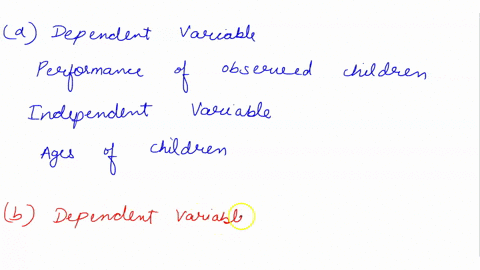 (a) Dependent Variable
Performance of observed children
Independent Variable
Ages of children
(b) Dependent Variabl